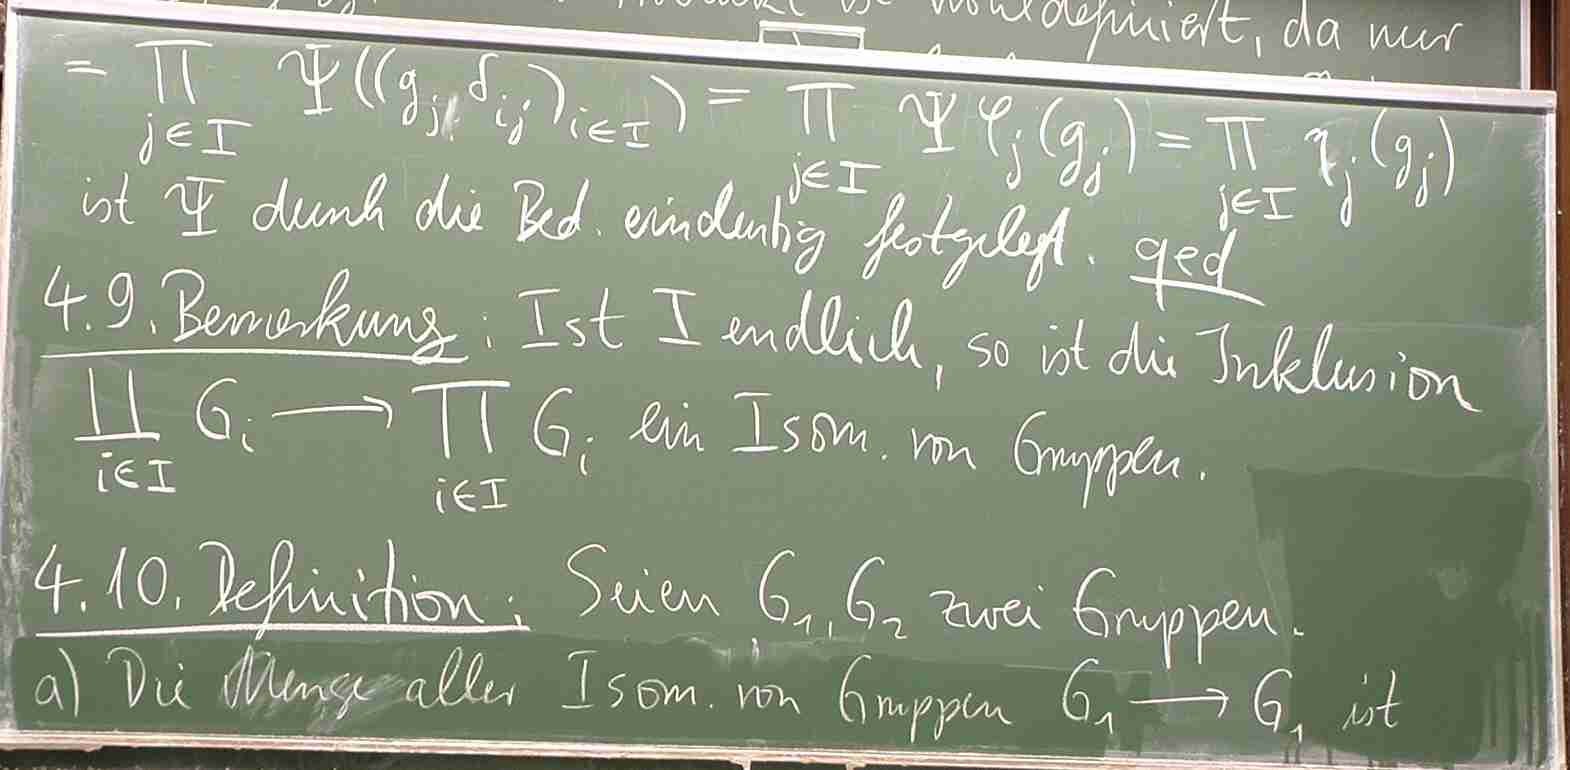 wohldefiniert, da nur
= ∏_{j∈I} Ψ((g_j δ_{ij})_{i∈I}) = ∏_{j∈I} Ψφ_j(g_j) = ∏_{j∈I} η_j(g_j)
ist Ψ durch die Bed. eindeutig festgelegt. qed
4.9. Bemerkung: Ist I endlich, so ist die Inklusion
∐_{i∈I} G_i → ∏_{i∈I} G_i ein Isom. von Gruppen.
4.10. Definition: Seien G_1, G_2 zwei Gruppen.
a) Die Menge aller Isom. von Gruppen G_1 → G_1 ist